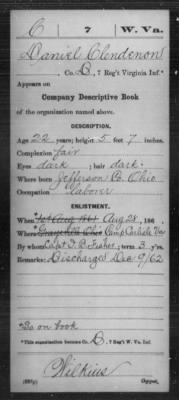 C 7 W. Va.
Daniel Clendenon
, Co. B, 7 Reg't Virginia Inf.*
Appears on
Company Descriptive Book
of the organization named above.
DESCRIPTION.
Age 22 years; height 5 feet 7 inches.
Complexion fair
Eyes dark ; hair dark.
Where born Jefferson Co. Ohio
Occupation laborer
ENLISTMENT.
When *1st Aug 1861 Aug 28, 186 .
Where *Grave Ck Ohio Camp Carlile Va
By whom Capt T. B. Fisher; term 3 y'rs.
Remarks: Discharged Dec 9/62
*So on book
*This organization became Co. B, 7 Reg't W. Va. Inf.
Wilkins
Copyist.